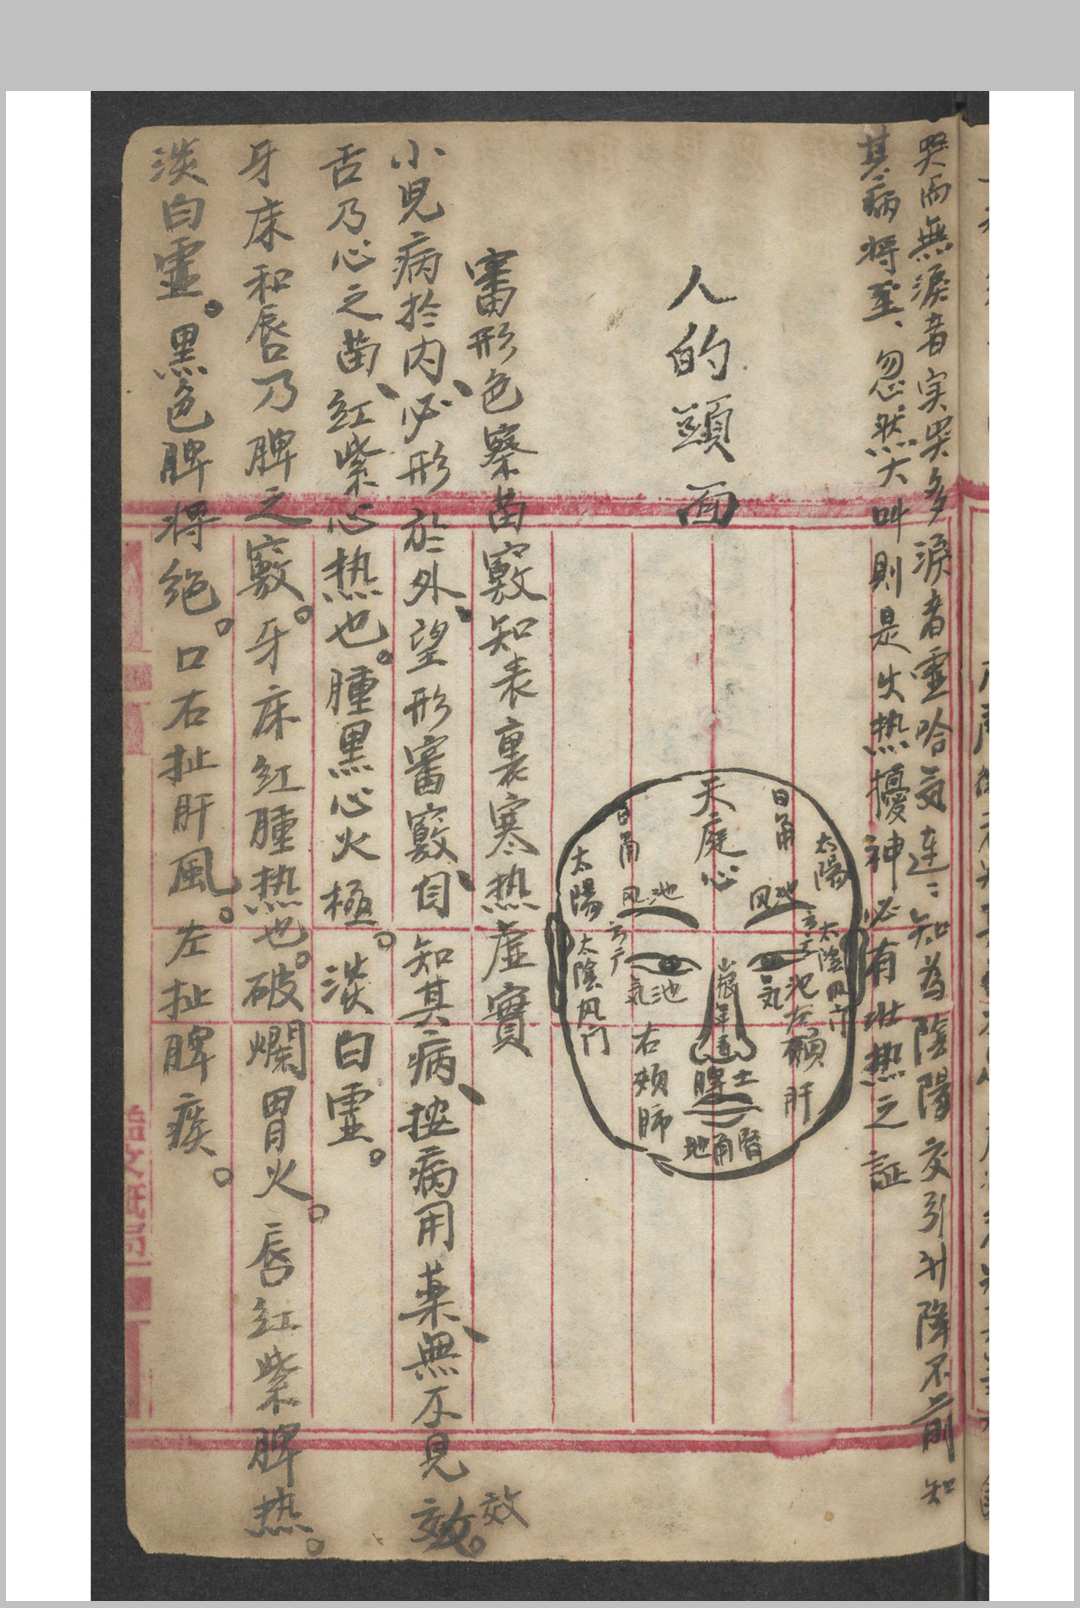 哭而無淚者实哭多淚者虚哈気連：知為陰陽交引升降不前知
其病将至、忽然大叫則是火热擾神必有壮热之証
人的頭面
天庭心
日角
日角
太陽
太陽
风池
风池
太陰风门
太陰风门
気池
気池
山根
年壽
右頰肺
左頰肝
脾土
地角腎
審形色察苗竅知表裏寒热虛實
小児病於内、必形於外、望形審竅、自知其病、按病用薬、無不見效。
效
舌乃心之苗、红紫心热也。腫黒心火極。淡白虚。
牙床和唇乃脾之竅。牙床红腫热也。破爛胃火。唇红紫脾热。
淡白虚。黒色脾将绝。口右扯肝風。左扯脾痰。